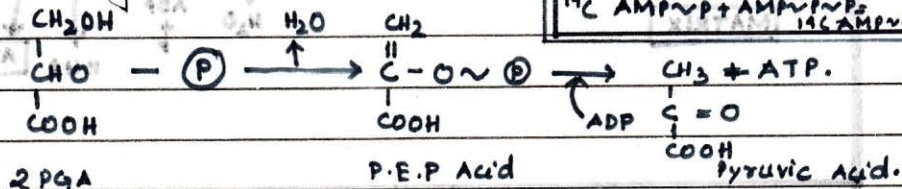 ¹⁴C AMP~P + AMP~P~P =
¹⁴C AMP~
CH₂OH H₂O CH₂
CHO — Ⓟ → C - O ~ Ⓟ → CH₃ + ATP.
COOH COOH ADP C = O
COOH
2 PGA P.E.P Acid Pyruvic Acid.